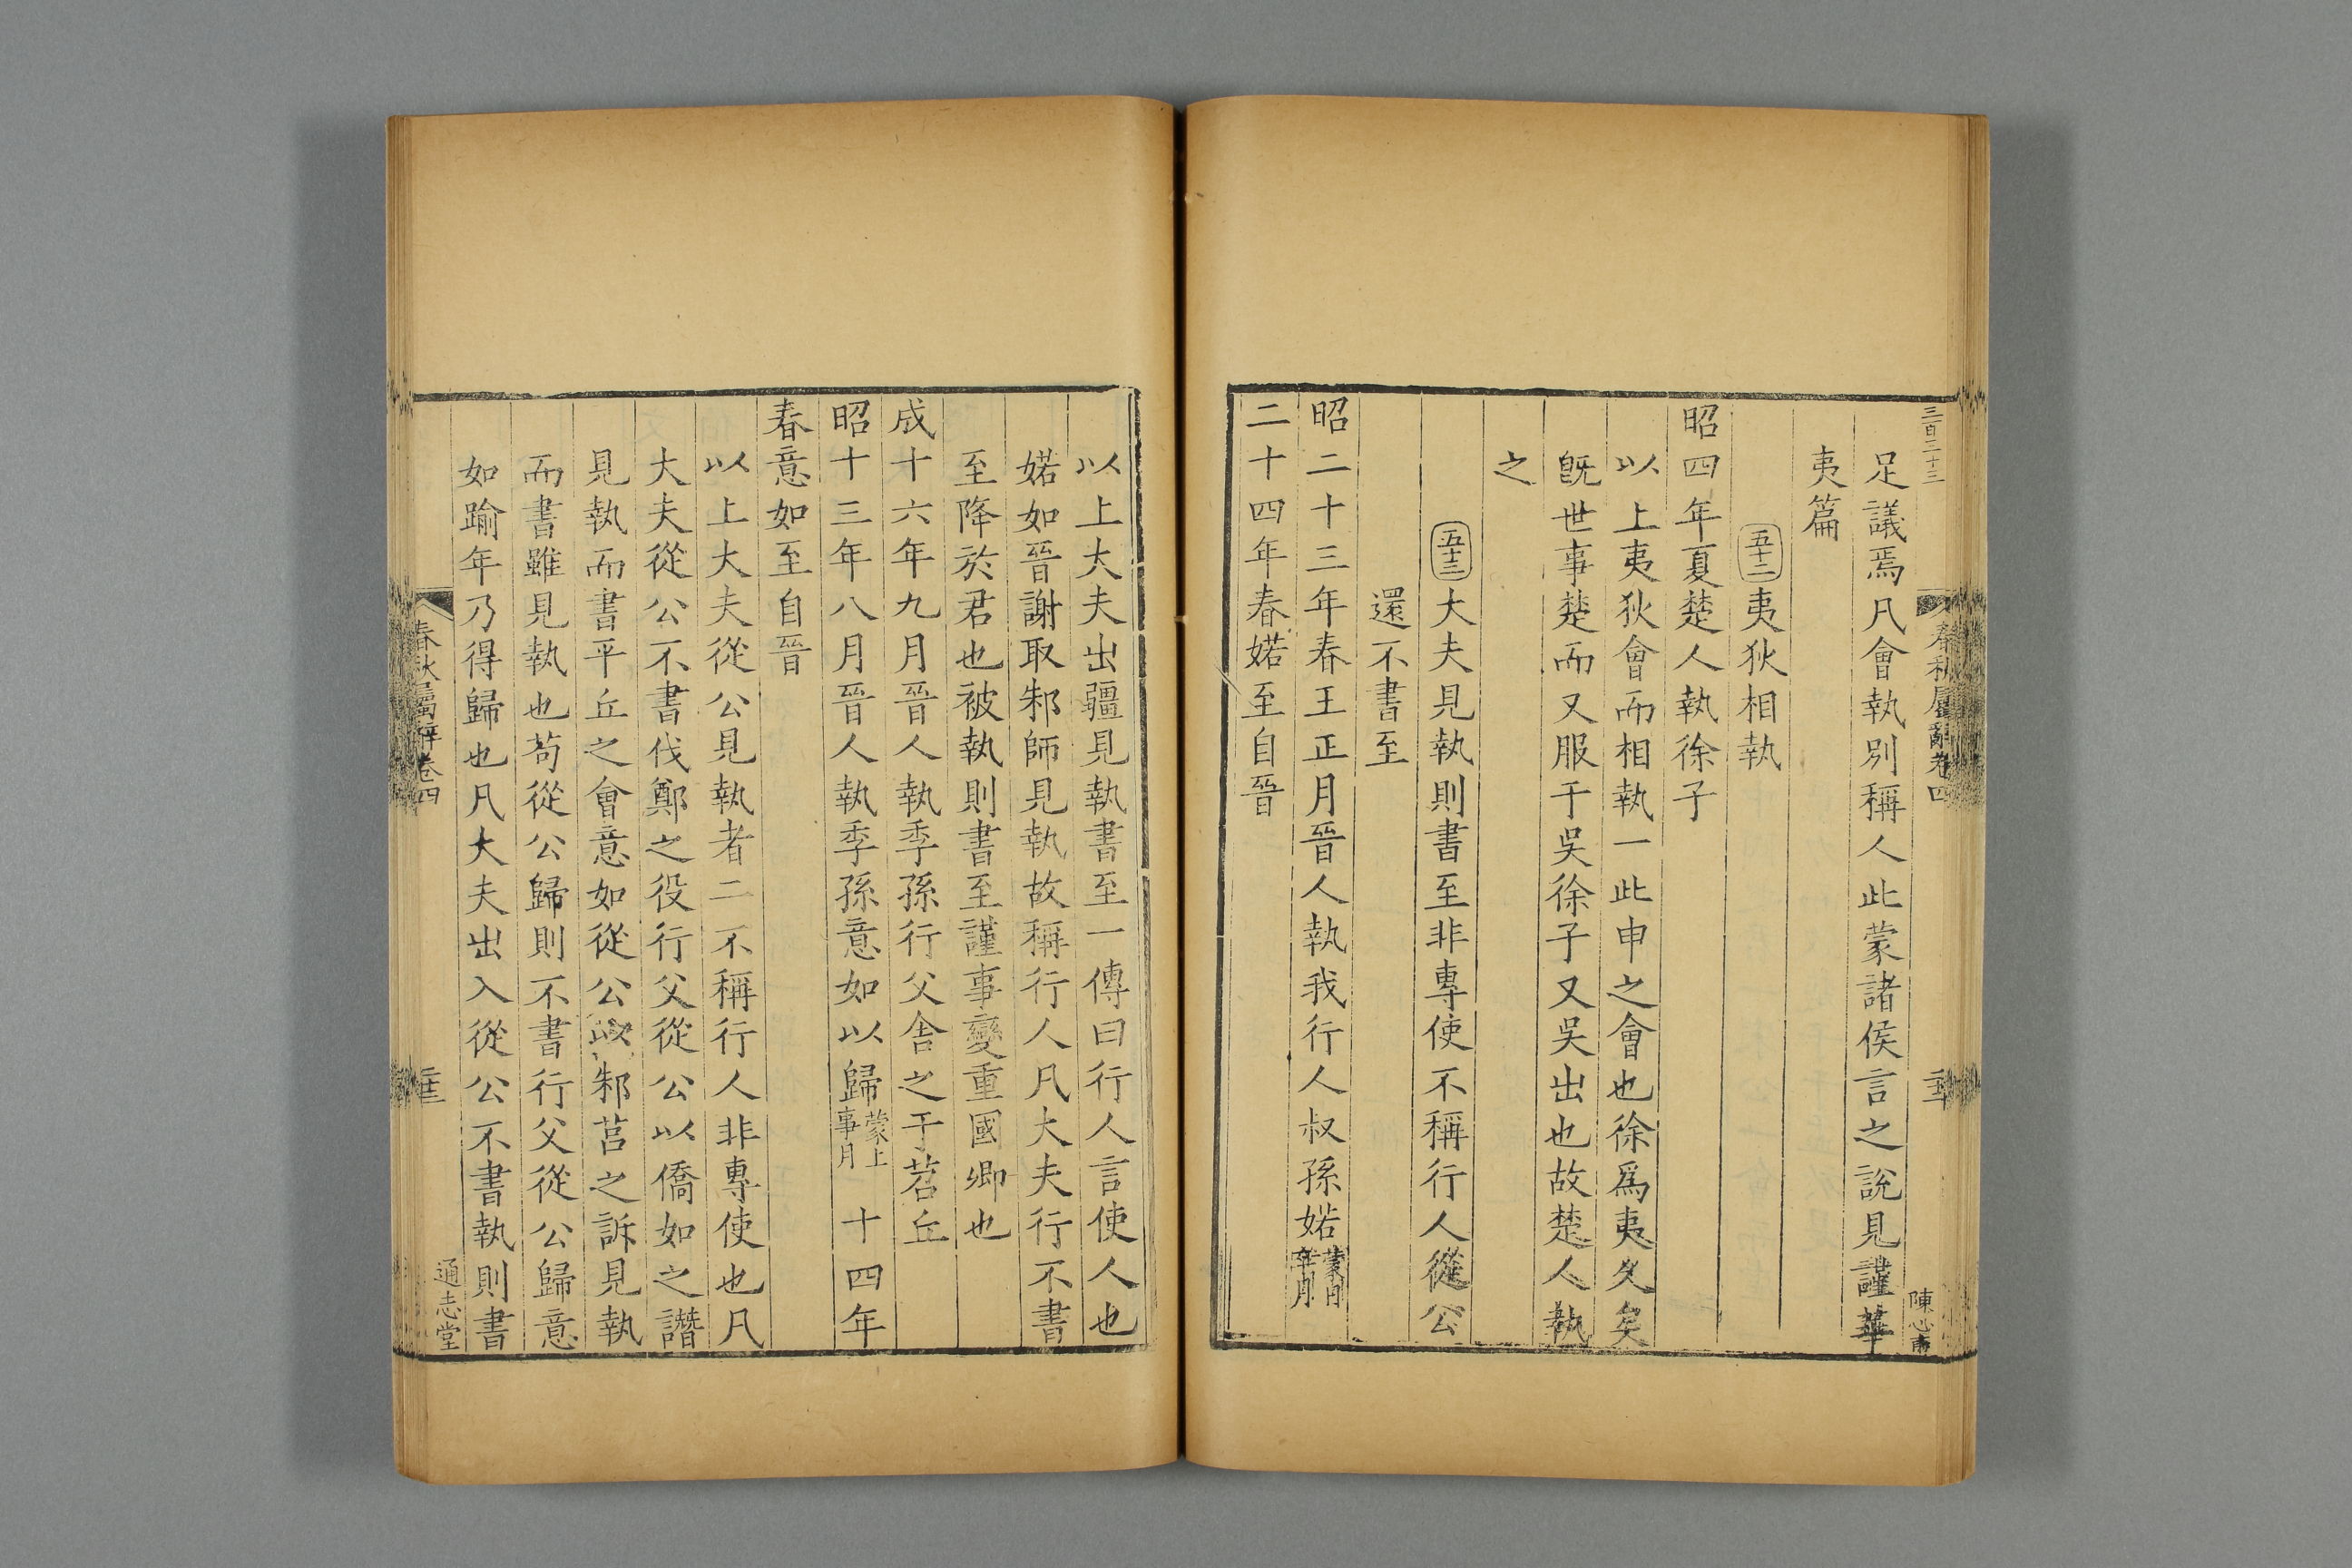 三百二十三
春秋屬辭卷四
陳心甫
足議焉凡會執別稱人此蒙諸侯言之說見謹華
夷篇
五十二夷狄相執
昭四年夏楚人執徐子
以上夷狄會而相執一此申之會也徐爲夷久矣
旣世事楚而又服于吳徐子又吳出也故楚人執
之
五十三大夫見執則書至非專使不稱行人從公
還不書至
昭二十三年春王正月晉人執我行人叔孫婼蒙日在月
二十四年春婼至自晉
以上大夫出疆見執書至一傳曰行人言使人也
婼如晉謝取邾師見執故稱行人凡大夫行不書
至降於君也被執則書至謹事變重國卿也
成十六年九月晉人執季孫行父舍之于苕丘
昭十三年八月晉人執季孫意如以歸蒙上事月 十四年
春意如至自晉
以上大夫從公見執者二不稱行人非專使也凡
大夫從公不書伐鄭之役行父從公以僑如之譖
見執而書平丘之會意如從公以邾莒之訴見執
而書雖見執也苟從公歸則不書行父從公歸意
如踰年乃得歸也凡大夫出入從公不書執則書
春秋屬辭卷四
通志堂